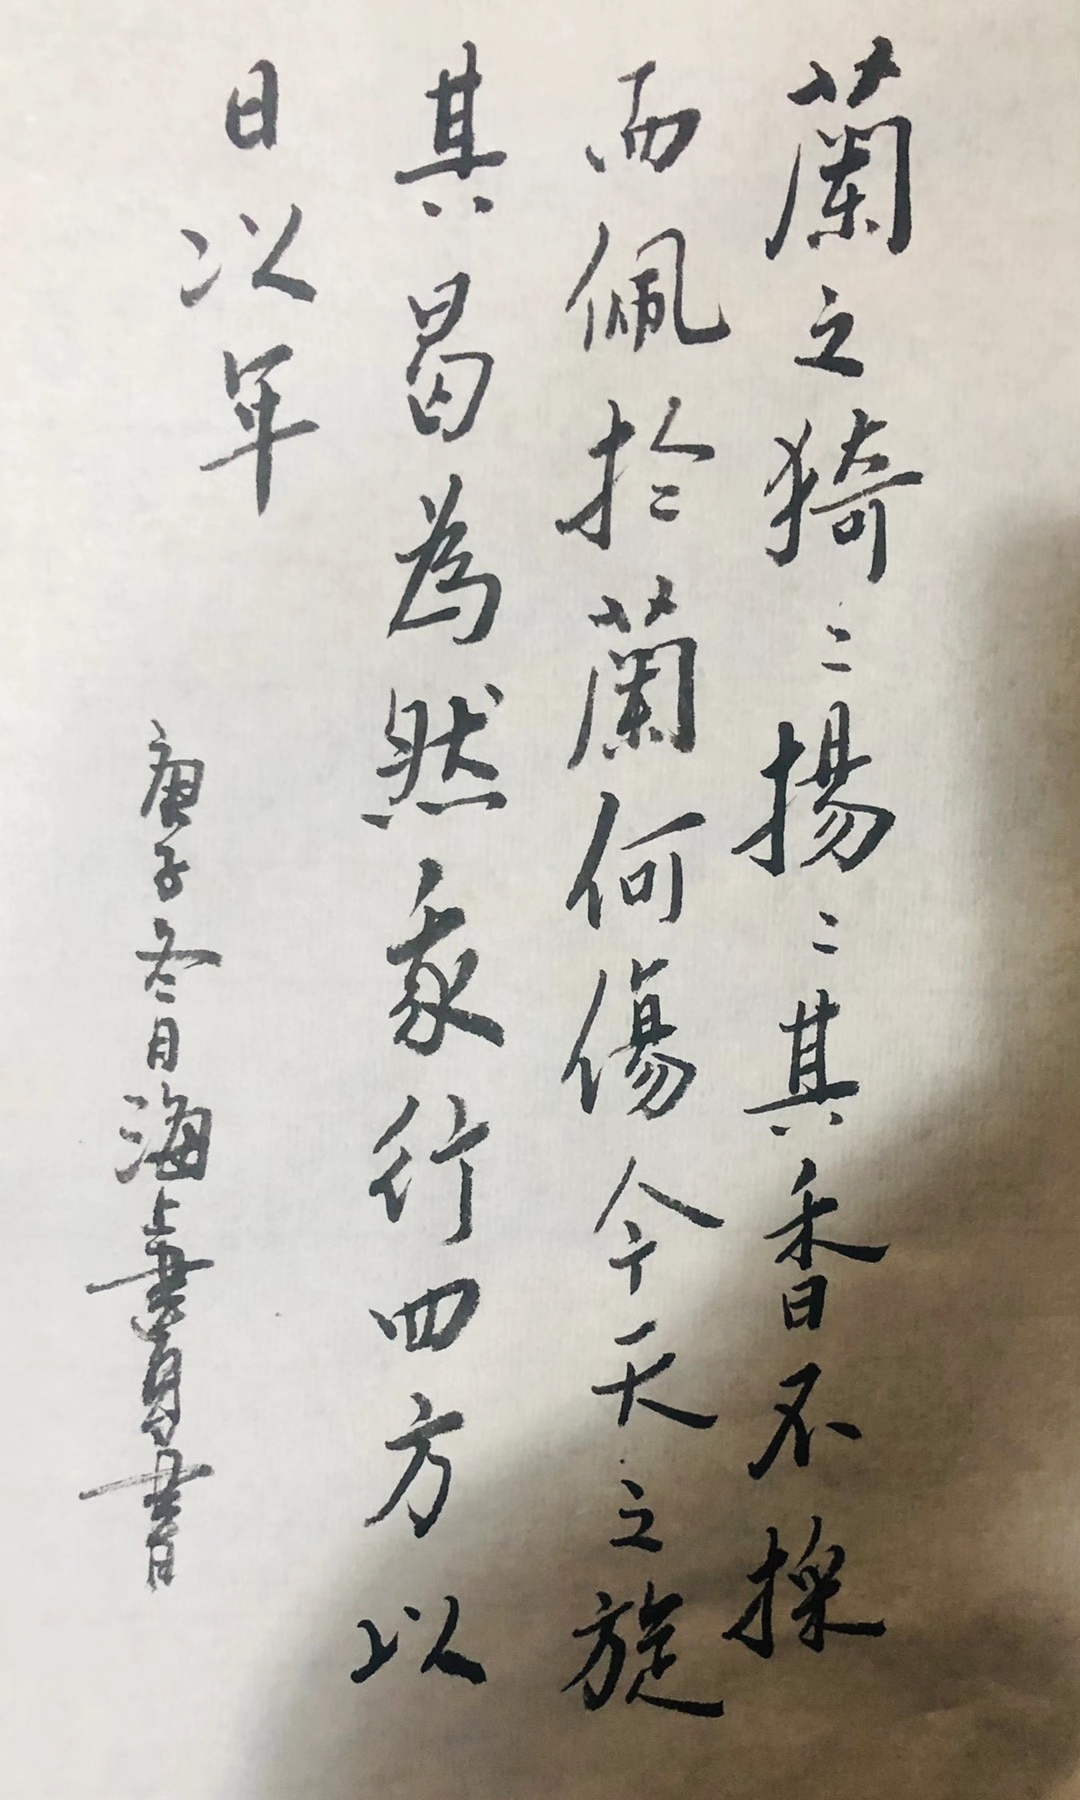 蘭之猗〻揚〻其香不採
而佩於蘭何傷今天之旋
其曷為然我行四方以
日以年
庚子冬日海上書